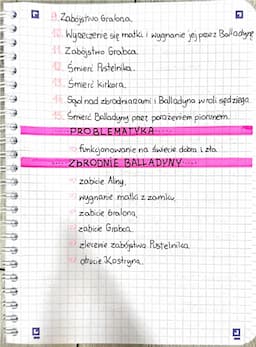 9. Zabójstwo Gralona.
10. Wyrzeczenie się matki i wygnanie jej przez Balladynę
11. Zabójstwo Grabca.
12. Śmierć Pustelnika.
13. Śmierć Kirkora.
14. Sąd nad zbrodniarzami i Balladyna w roli sędziego.
15. Śmierć Balladyny przez porażeniem piorunem.
PROBLEMATYKA
funkcjonowanie na świecie dobra i zła.
ZBRODNIE BALLADYNY
zabicie Aliny,
wygnanie matki z zamku,
zabicie Gralona,
zabicie Grabca,
zlecenie zabójstwa Pustelnika,
otrucie Kostryna.